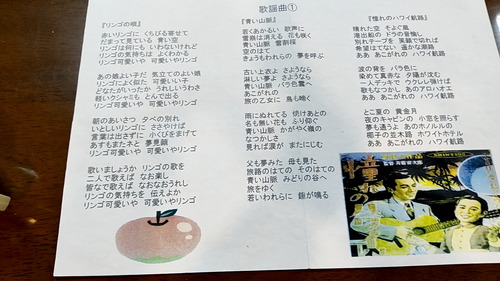 歌謡曲①
『リンゴの唄』
赤いリンゴに くちびる寄せて
だまって見ている 青い空
リンゴは何にも いわないけれど
リンゴの気持ちは よくわかる
リンゴ可愛いや 可愛いやリンゴ
あの娘よい子だ 気立てのよい娘
リンゴによく似た 可愛い子
どなたがいったか うれしいうわさ
軽いクシャミも とんで出る
リンゴ可愛いや 可愛いやリンゴ
朝のあいさつ 夕べの別れ
いとしいリンゴに ささやけば
言葉は出さずに 小くびをまげて
あすもまたネと 夢見顔
リンゴ可愛いや 可愛いやリンゴ
歌いましょうか リンゴの歌を
二人で歌えば なお楽し
皆なで歌えば なおなおうれし
リンゴの気持ちを 伝えよか
リンゴ可愛いや 可愛いやリンゴ
『青い山脈』
若くあかるい 歌声に
雪崩は消える 花も咲く
青い山脈 雪割桜
空のはて
きょうもわれらの 夢を呼ぶ
古い上衣よ さようなら
淋しい夢よ さようなら
青い山脈 バラ色雲へ
あこがれの
旅の乙女に 鳥も啼く
雨にぬれてる 焼けあとの
名も無い花も ふり仰ぐ
青い山脈 かがやく嶺の
なつかしさ
見れば涙が またにじむ
父も夢みた 母も見た
旅路のはての そのはての
青い山脈 みどりの谷へ
旅をゆく
若いわれらに 鐘が鳴る
『憧れのハワイ航路』
晴れた空 そよぐ風
港出船の ドラの音愉し
別れテープを 笑顔で切れば
希望はてない 遥かな潮路
ああ あこがれの ハワイ航路
波の背を バラ色に
染めて真赤な 夕陽が沈む
一人デッキで ウクレレ弾けば
歌もなつかし あのアロハオエ
ああ あこがれの ハワイ航路
とこ夏の 黄金月
夜のキャビンの 小窓を照らす
夢も通うよ あのホノルルの
椰子の並木路 ホワイトホテル
ああ あこがれの ハワイ航路